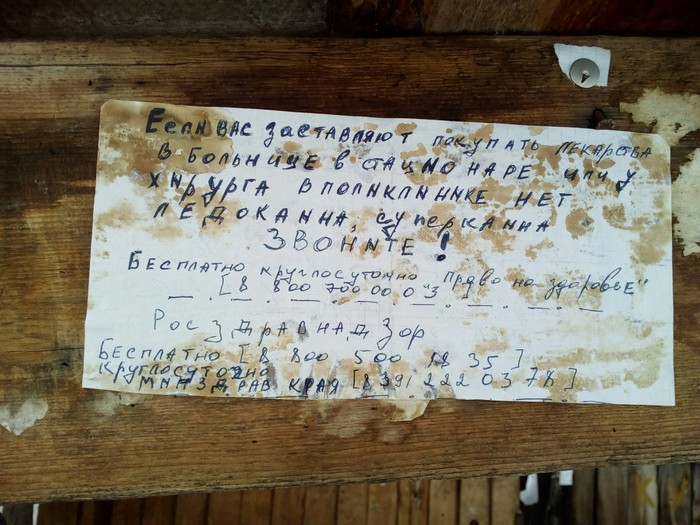 Если вас заставляют покупать лекарства
в больнице в стационаре или у
хирурга в поликлинике нет
ледокаина, суперкаина
ЗВОНИТЕ!
Бесплатно круглосуточно "Право на здоровье"
[8 800 700 00 03]
Росздравнадзор
Бесплатно [8 800 500 18 35]
круглосуточно
Минздрав края [8 391 222 03 78]